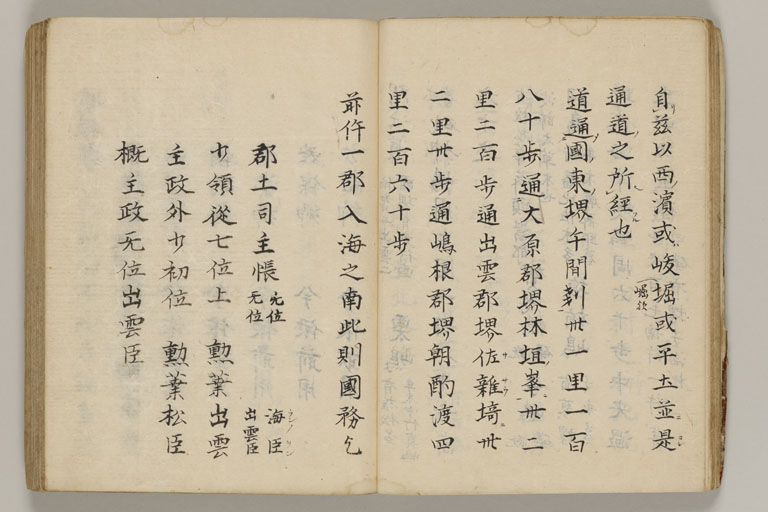 自茲以西濱或峻堀或平土並是
通道之所經也
道通國東堺午間剗卅一里一百
八十歩通大原郡堺林垣峯卅二
里二百歩通出雲郡堺佐雜埼卅
二里卅歩通嶋根郡堺朝酌渡四
里二百六十歩
前件一郡入海之南此則國務乞
郡土司主帳 无位 海臣
无位 出雲臣
少領從七位上 勲業出雲
主政外少初位 勲業松臣
概主政无位出雲臣